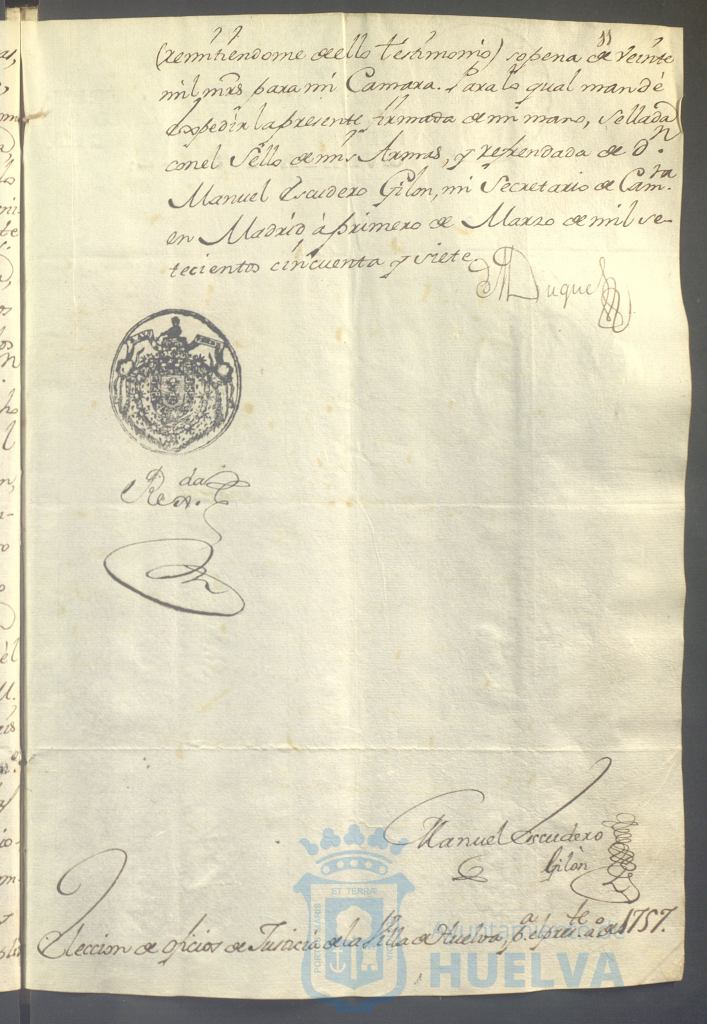 (remitiendome de ello testimonio) sopena de veinte
mil mrs para mi Camara. Para lo qual mandè
expedir la presente firmada de mi mano, sellada
con el Sello de mis Armas, y refrendada de Dn.
Manuel Escudero Gilòn, mi Secretario de Camra.
en Madrid à primero de Marzo de mil se-
tecientos cincuenta y siete.
El Duque
Rexda.
Manuel Escudero
Gilòn
Eleccion de oficios de Justicia de la Villa de Huelva, pa. el preste. año de 1757.
ET TERRAE
Ayuntamiento de
HUELVA